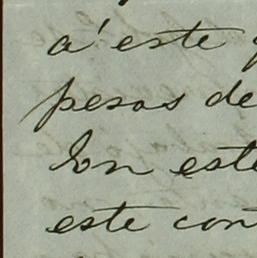 a' este
pesos de
Con este
este con